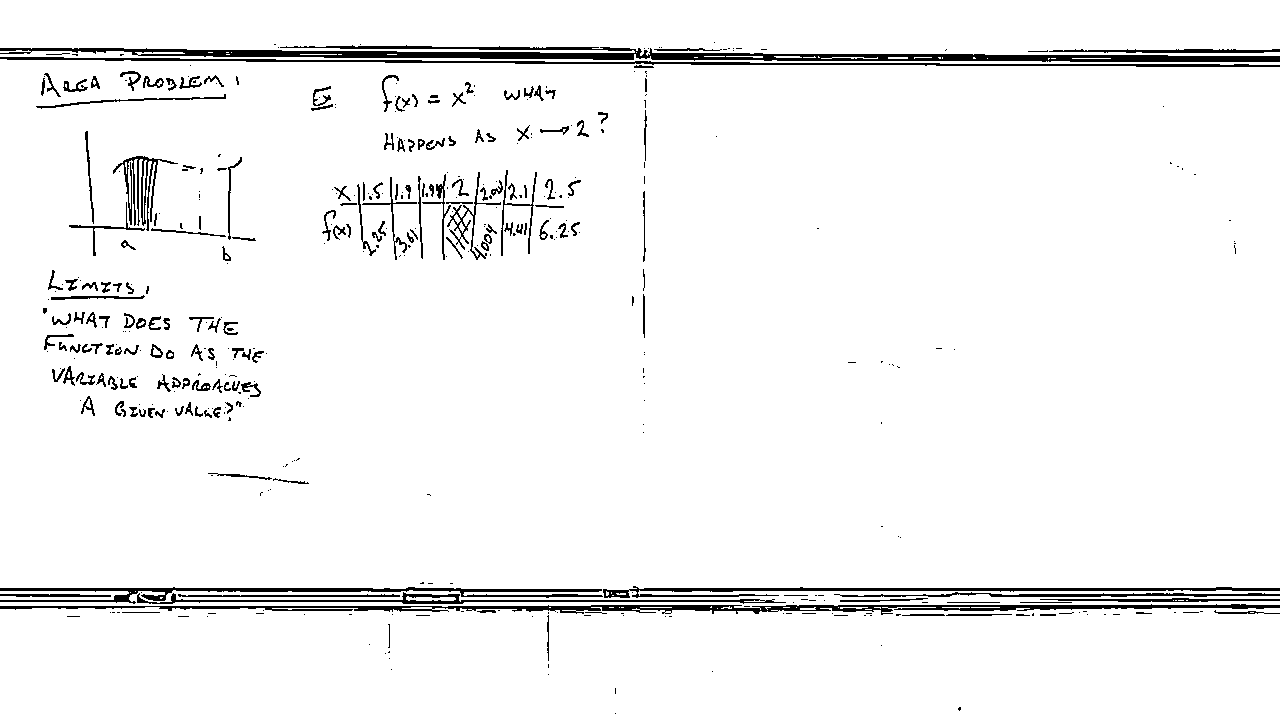 AREA PROBLEM:
a
b
LIMITS:
"WHAT DOES THE
FUNCTION DO AS THE
VARIABLE APPROACHES
A GIVEN VALUE?"
EX f(x) = x² WHAT
HAPPENS AS X → 2?
X 1.5 1.9 2 2.1 2.5
f(x) 2.25 3.61 4.004 4.41 6.25